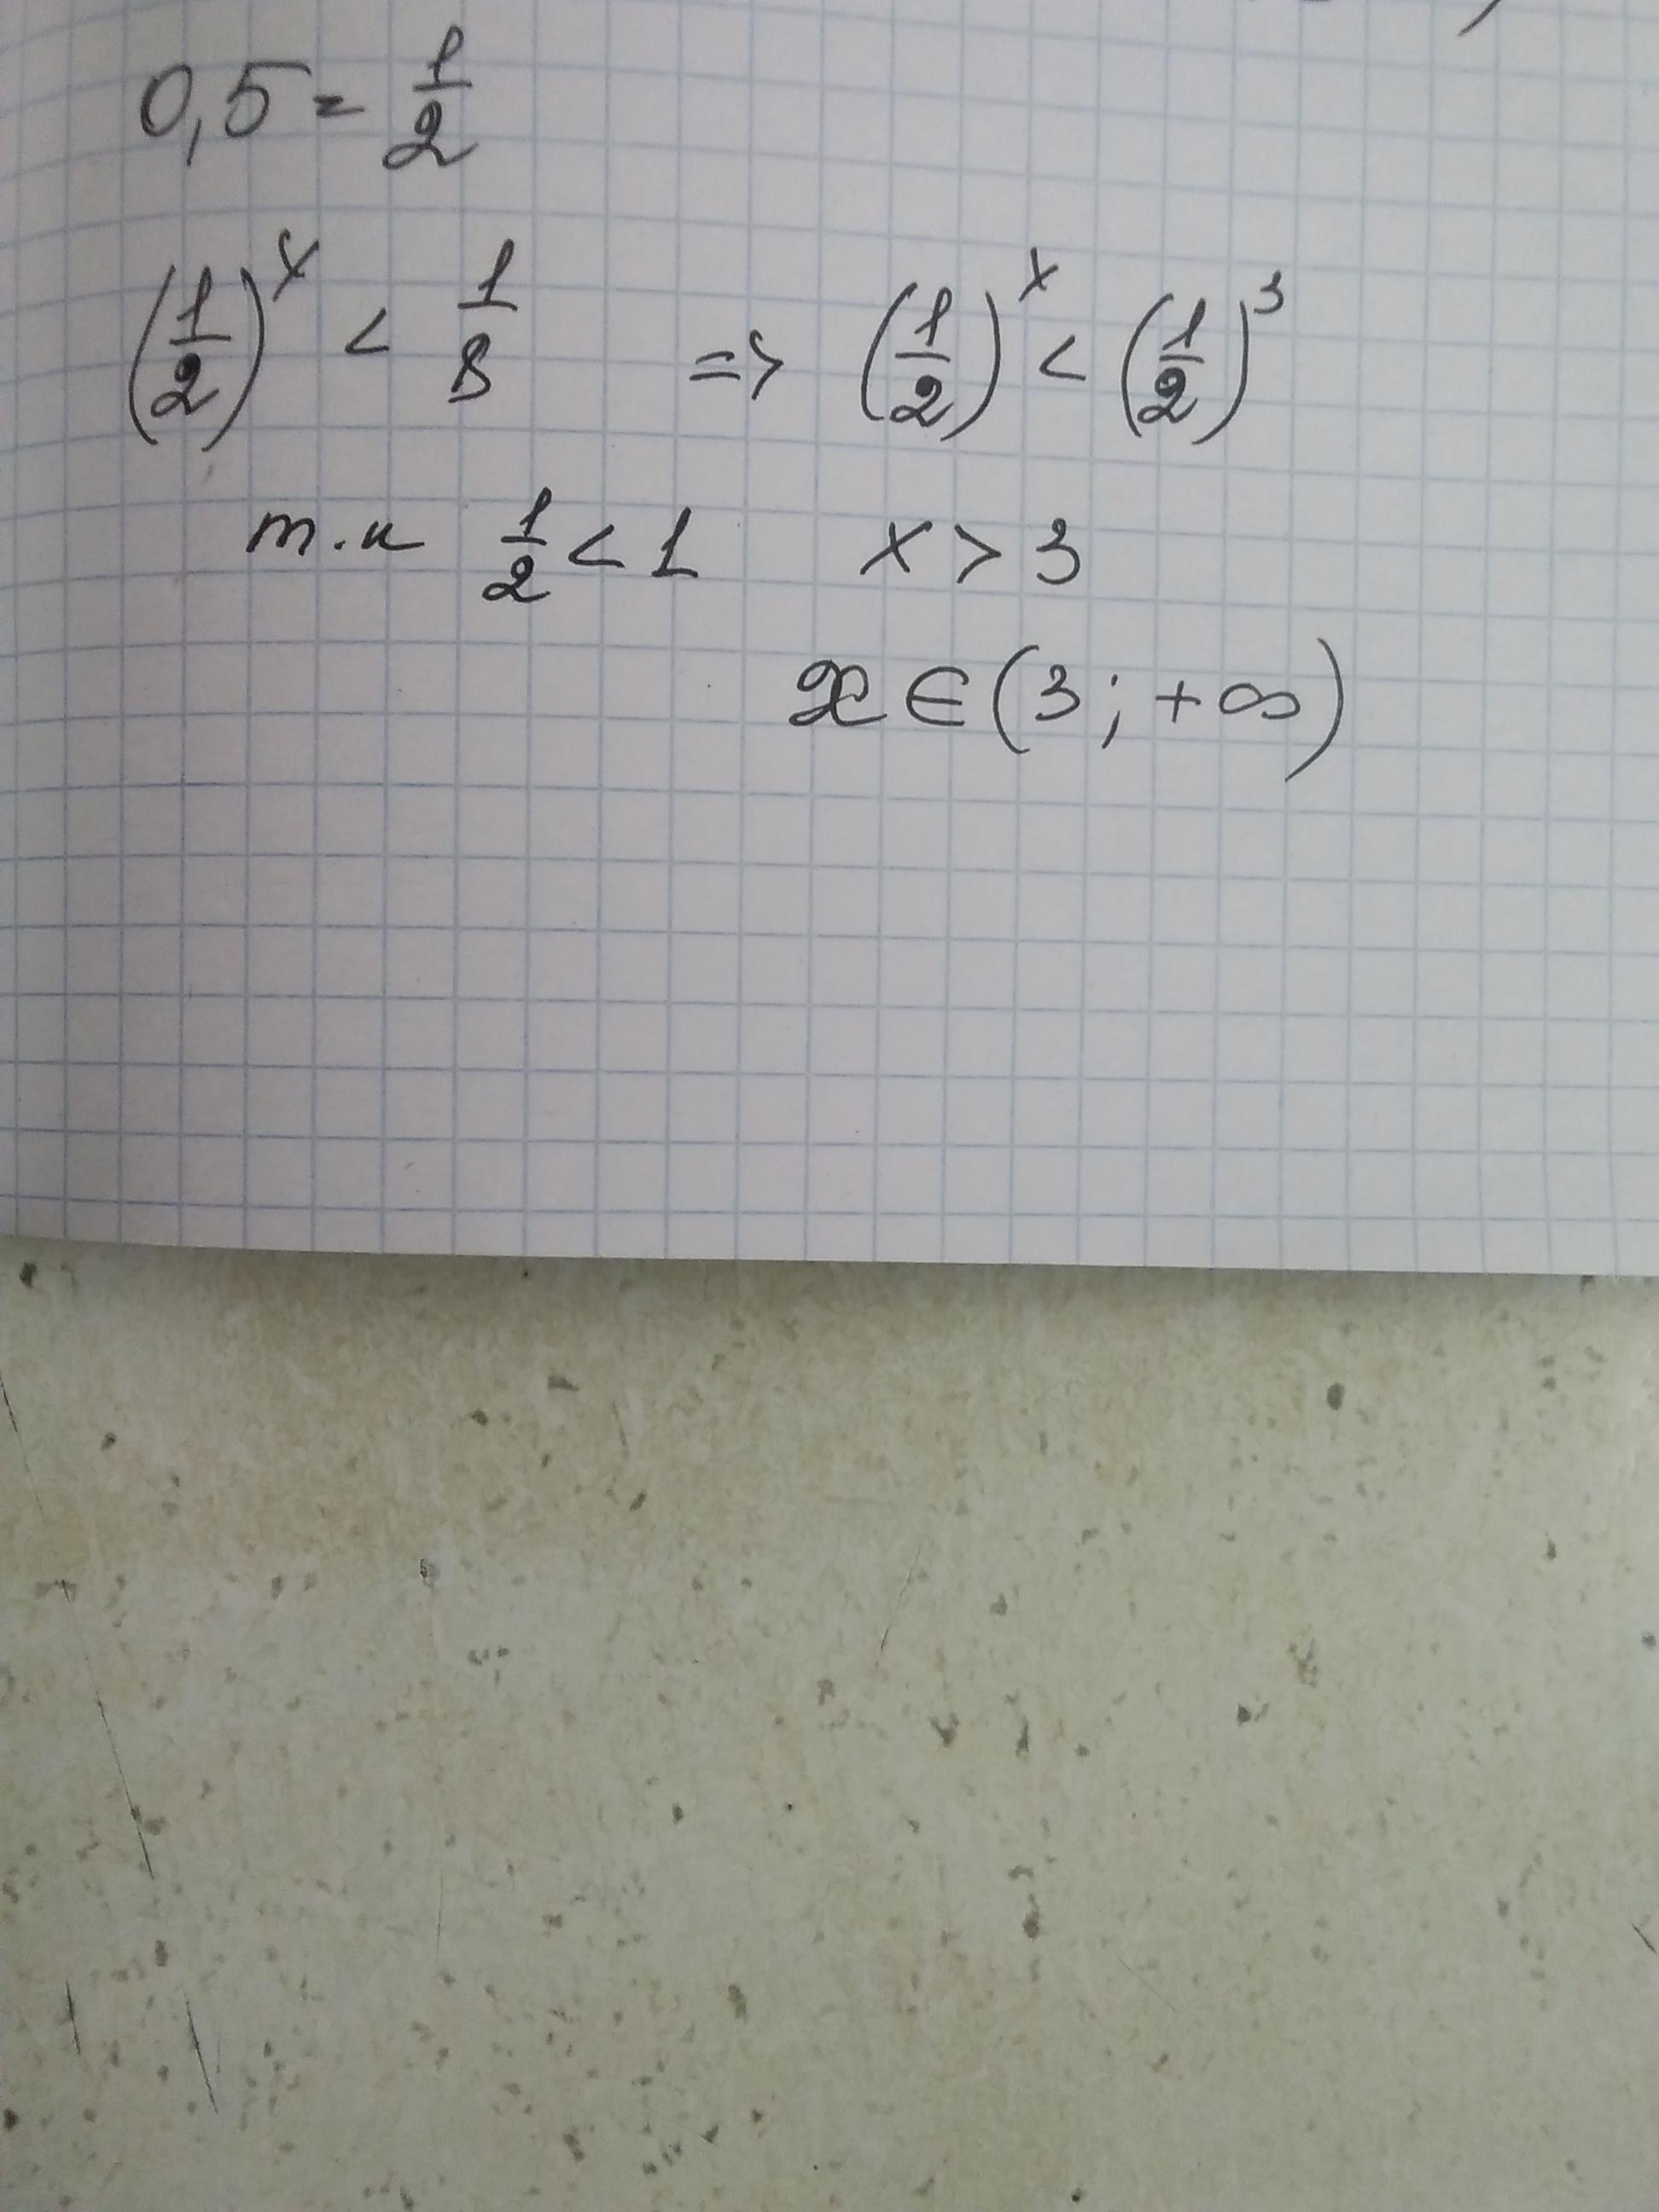 0,5 = 1/2
(1/2)^x < 1/8 => (1/2)^x < (1/2)^3
т.к 1/2 < 1 x > 3
x ∈ (3; +∞)